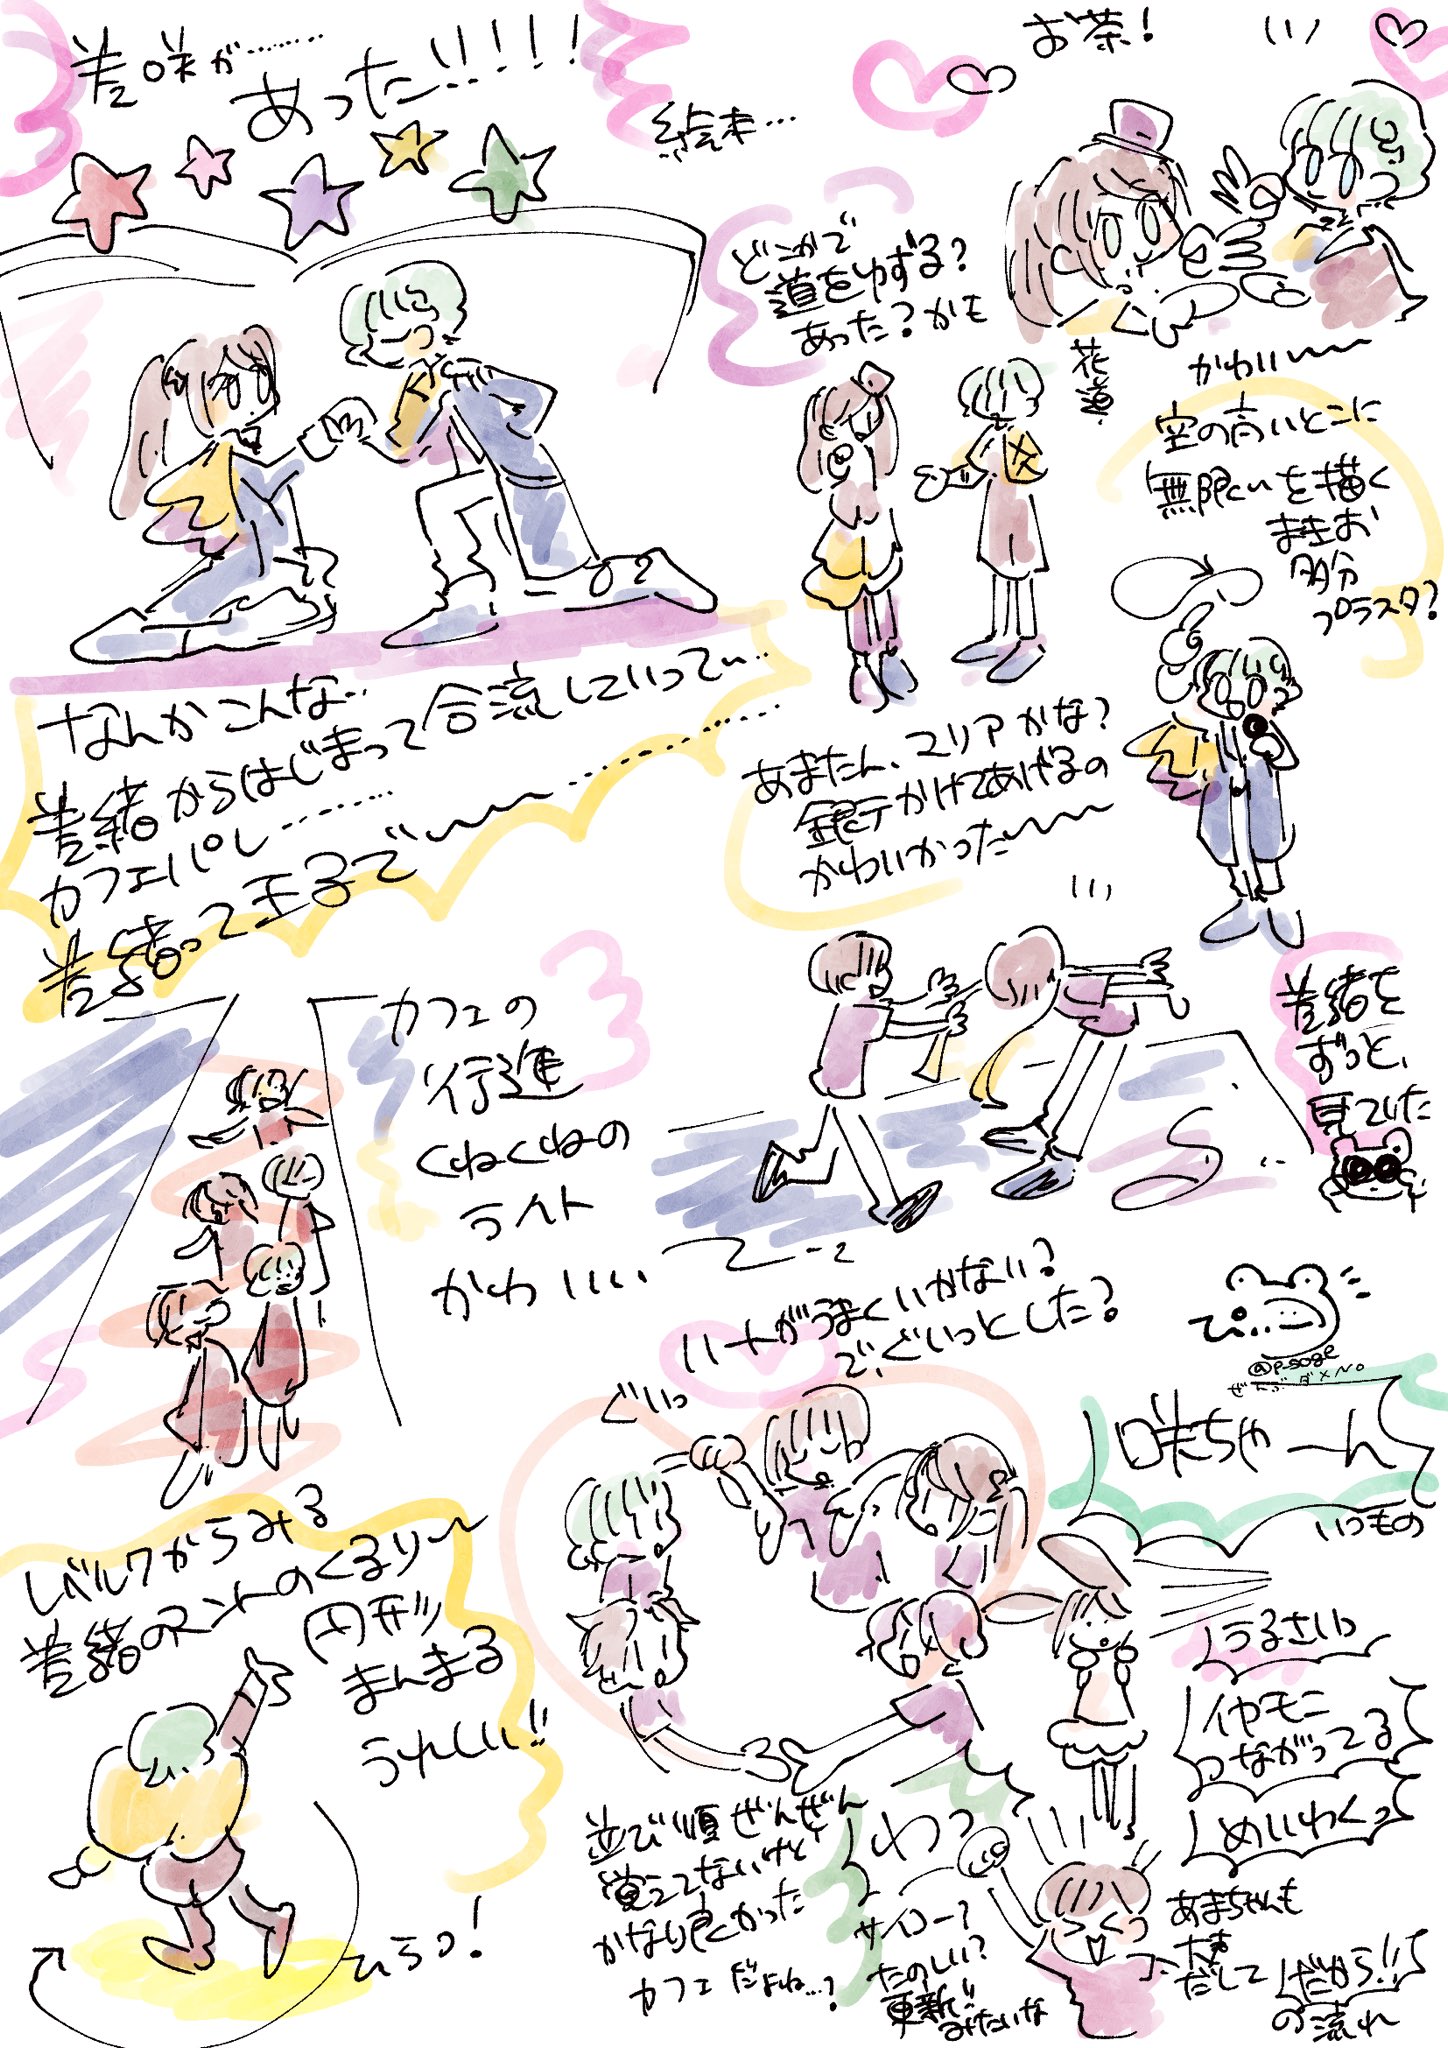 差咲が……
あった!!!!!
絵本…
お茶!
どこかで
道をゆずる?
あった?かも
花道
かわいい〜〜
空の高いとこに
無限大を描く
まきお
多分
プラスタ?
なんかこんな…
差緒からはじまって合流していって…
カフェパレ……
差緒って王子で〜〜〜…………
あまたん、ユリアかな?
銀テかけてあげるの
かわいかった〜〜〜
差緒を
ずっと、
見ていた
カフェの
行進
くねくねの
ライト
かわいいい
ハートがうまくいかない?
で、ぐいっとした?
ぐいっ
ぴぃ
@p_soge
ぜんぶダメNo
咲ちゃーん
いつもの
うるさいっ
イヤモニ
つながってる
めいわくっ
レベル7からみる
差緒のマントのくるり〜
円形!!
まんまる
うれしい!!
ひらっ!
並び順ぜんぜん
覚えてないけど
かなり良かった
カフェだよね…?
しわっ
サイコー?
たのしい?
更新!!
みたいな
あまちゃんも
大声
だして
だから!!
の流れ